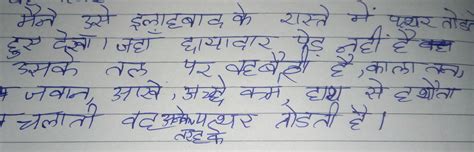 मैने उसे इलाहबाद के रास्ते में पत्थर तोडते
हुए देखा। जहाँ छायादार पेड नहीं है
उसके तल पर वह बैठी है, काला तन,
जवान, आखे, अच्छे कर्म, हाथ से हथौता
चलाती वह अनेक पत्थर तोडती है।
तरह के